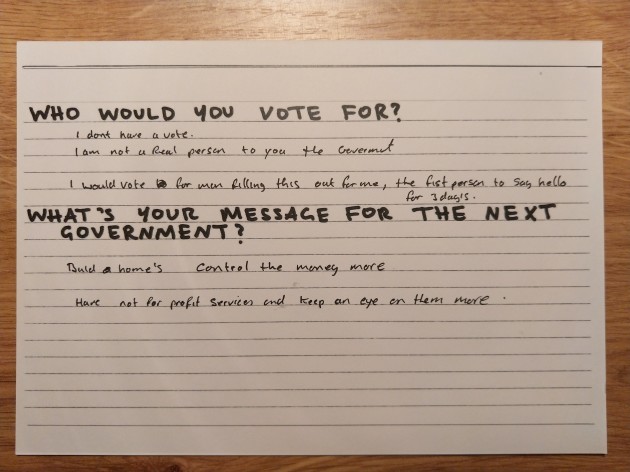 WHO WOULD YOU VOTE FOR?
I dont have a vote.
I am not a Real person to you the Goverment
I would vote for man filling this out for me, the fist person to say hello
for 3 days.
WHAT'S YOUR MESSAGE FOR THE NEXT
GOVERNMENT?
Build a home's Control the money more
Have not for profit services and keep an eye on them more.